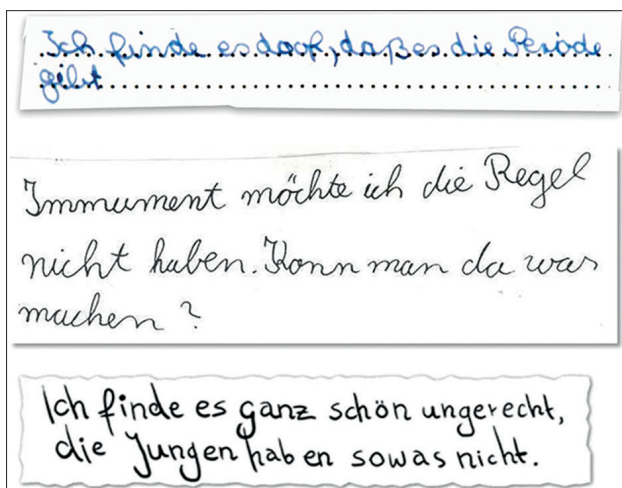 Ich finde es doof, daß es die Periode
gibt
Immument möchte ich die Regel
nicht haben. Kann man da was
machen?
Ich finde es ganz schön ungerecht,
die Jungen haben sowas nicht.